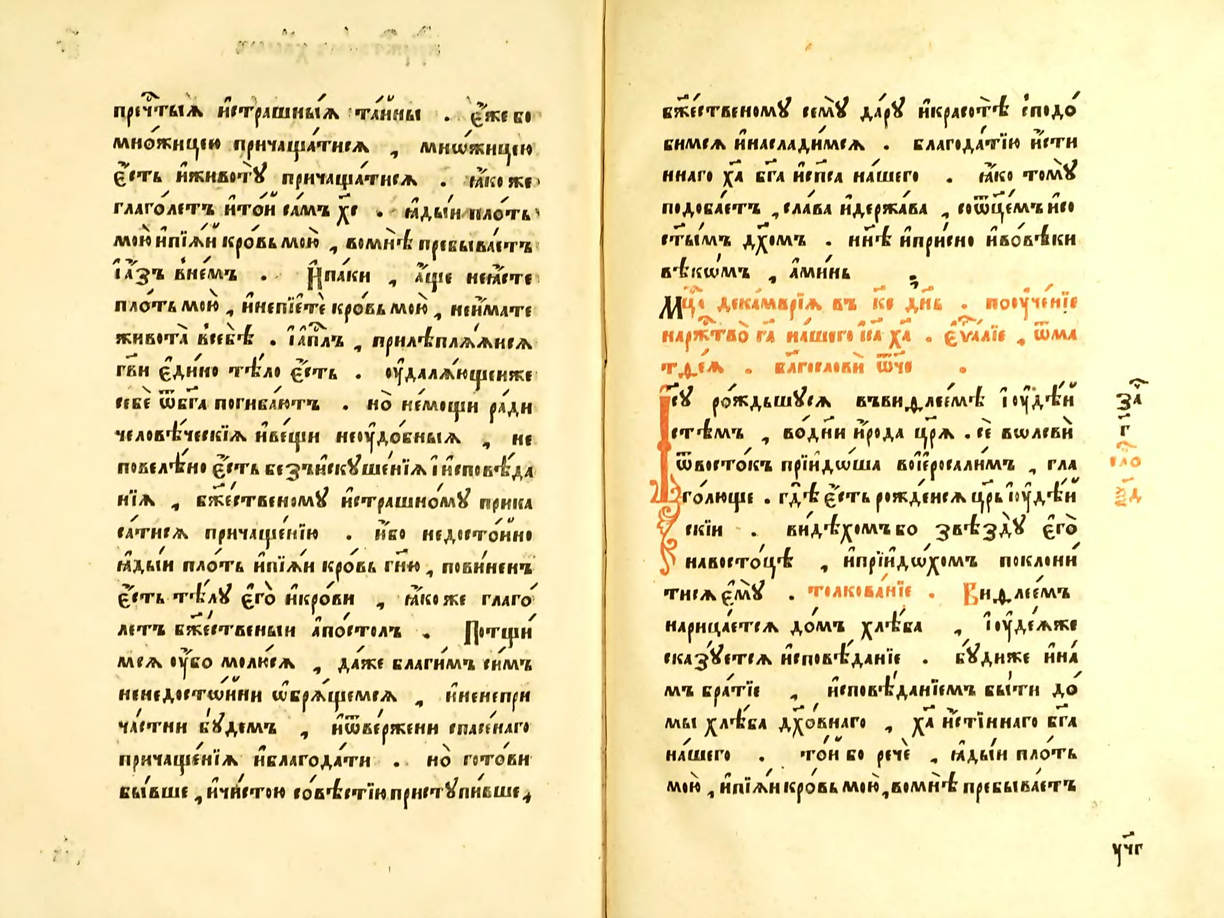 пречⷭ҇тыѧ и҆страшны́ѧ та́йны . є҆́же бо
мно́жицею причаща́тисѧ , мнѡ́жицею
є҆́сть и҆животꙋ̀ причаща́тисѧ . ꙗ҆́коже
глаго́летъ и҆то́й са́мъ хс҃ . ꙗ҆ды́и пло́ть
мою̀ и҆пїѧ́и кро́вь мою̀ , вомнѣ̀ пребыва́етъ
і҆а҆́зъ внє́мъ . И҆па́ки , а҆́ще неꙗ҆́сте
пло́ть мою̀ , и҆непїе́те кро́вь мою̀ , неи҆́мате
живота̀ всебѣ̀ . і҆а҆пⷭ҇лъ , прилѣплѧ́ѧисѧ
гв҃и є҆ди́но тѣ́ло є҆́сть . оу҆далѧ́ющеиже
себѐ ѿбг҃а погиба́ютъ . но̀ не́мощи ра́ди
человѣ́ческїѧ и҆ве́щи неоу҆до́бныѧ , не
повелѣ́но є҆́сть беⁿз̾и҆скꙋше́нїѧ і҆и҆сповѣ́да
нїѧ , бж҃е́ственомꙋ и҆стра́шномꙋ прика
са́тисѧ причаще́нїю . и҆́бо недосто́йно
ꙗ҆ды́и пло́ть и҆пїѧ́и кро́вь гн҃ю , пови́ненъ
є҆́сть тѣ́лꙋ є҆гѡ̀ и҆кро́ви , ꙗ҆́коже глаго́
летъ бж҃е́ственыи а҆по́столъ . Потщи́
мсѧ оу҆́бо молю́сѧ , да́же благи́мъ си́мъ
ненедосто́йни ѡ҆брѧ́щемсѧ , и҆нене́при
ча́стни бꙋ́демъ , и҆ѿве́ржени спасе́наго
причаще́нїѧ и҆благода́ти . но̀ гото́ви
бы́вше , и҆чи́стою со́вѣстїю пристꙋпи́вше ,
бж҃е́ственомꙋ семꙋ̀ да́рꙋ и҆красотѣ̀ сподо́
бимсѧ и҆наслади́мсѧ . благода́тїю и҆́сти
ннаго хⷭ҇а бг҃а и҆сп҃са на́шего . ꙗ҆́ко томꙋ̀
подоба́етъ , сла́ва и҆держа́ва , соѿц҃е́мъ и҆со
ст҃ы́мъ дх҃омъ . нн҃ѣ и҆при́сно и҆во́вѣки
вѣкѡ́мъ , а҆ми́нь
Мцⷭ҇а декамврїѧ въ ке днь . пооуче́нїе
наржⷭ҇тво̀ гⷭ҇а на́шего і҆са хⷭ҇а . є҆ѵⷢ҇алїе , ѿма
тѳе́ѧ . благословѝ ѿч҃е .
І҆сꙋ рожⷣьшꙋсѧ въвиѳлее́мѣ і҆оу҆дѣ́й
стѣмъ , во́дни и҆́рода цр҃ѧ . сѐ волсвѝ
ѿвосто́къ прїидо́ша воі҆еросали́мъ , гла
го́люще . гдѣ̀ є҆́сть рожде́исѧ цр҃ь і҆оу҆дѣ́й
скїи . ви́дѣхомъ бо ѕвѣздꙋ̀ є҆гѡ̀
навосто́цѣ , и҆прїидо́хомъ поклони́
тисѧ є҆мꙋ̀ . толкова́нїе . Виѳлее́мъ
нарица́етсѧ до́мъ хлѣ́ба , і҆оу҆де́ѧже
ска́зꙋетсѧ и҆сповѣ́данїе . бꙋ́диже и҆на́
мъ бра́тїе , и҆сповѣ́данїемъ бы́ти до́
мы хлѣ́ба дх҃о́внаго , хⷭ҇а и҆́стїннаго бг҃а
на́шего . то́й бо речѐ , ꙗ҆ды́и пло́ть
мою̀ , и҆пїѧ́и кро́вь мою̀ , вомнѣ̀ пребыва́етъ
зач
г
уч҃г